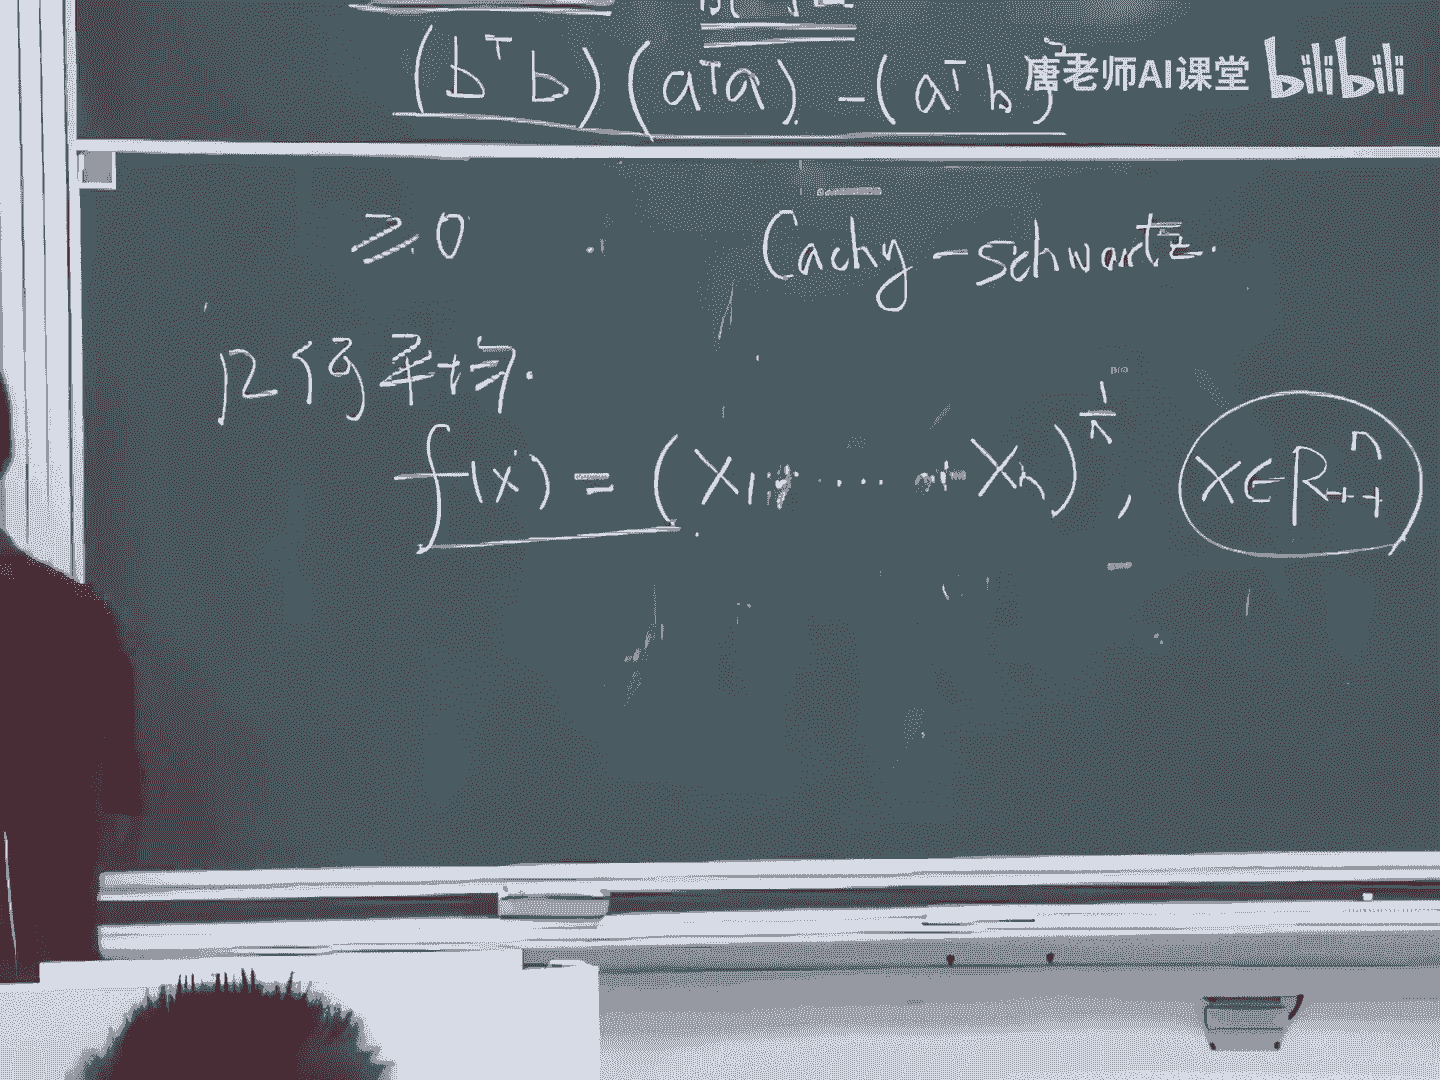 (bᵀb)(aᵀa) - (aᵀb)²
唐老师AI课堂 bilibili
≥0 Cachy-Schwartz.
几何平均.
f(x) = (X₁ ··· Xₙ)^{1/n}, X∈R₊₊ⁿ